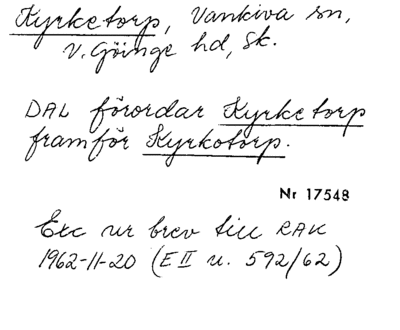 Kyrketorp, Vankiva sn,
V. Göinge hd, Sk.
DAL förordar Kyrketorp
framför Kyrkotorp.
Nr 17548
Exc ur brev till RAK
1962-11-20 (E II u. 592/62)